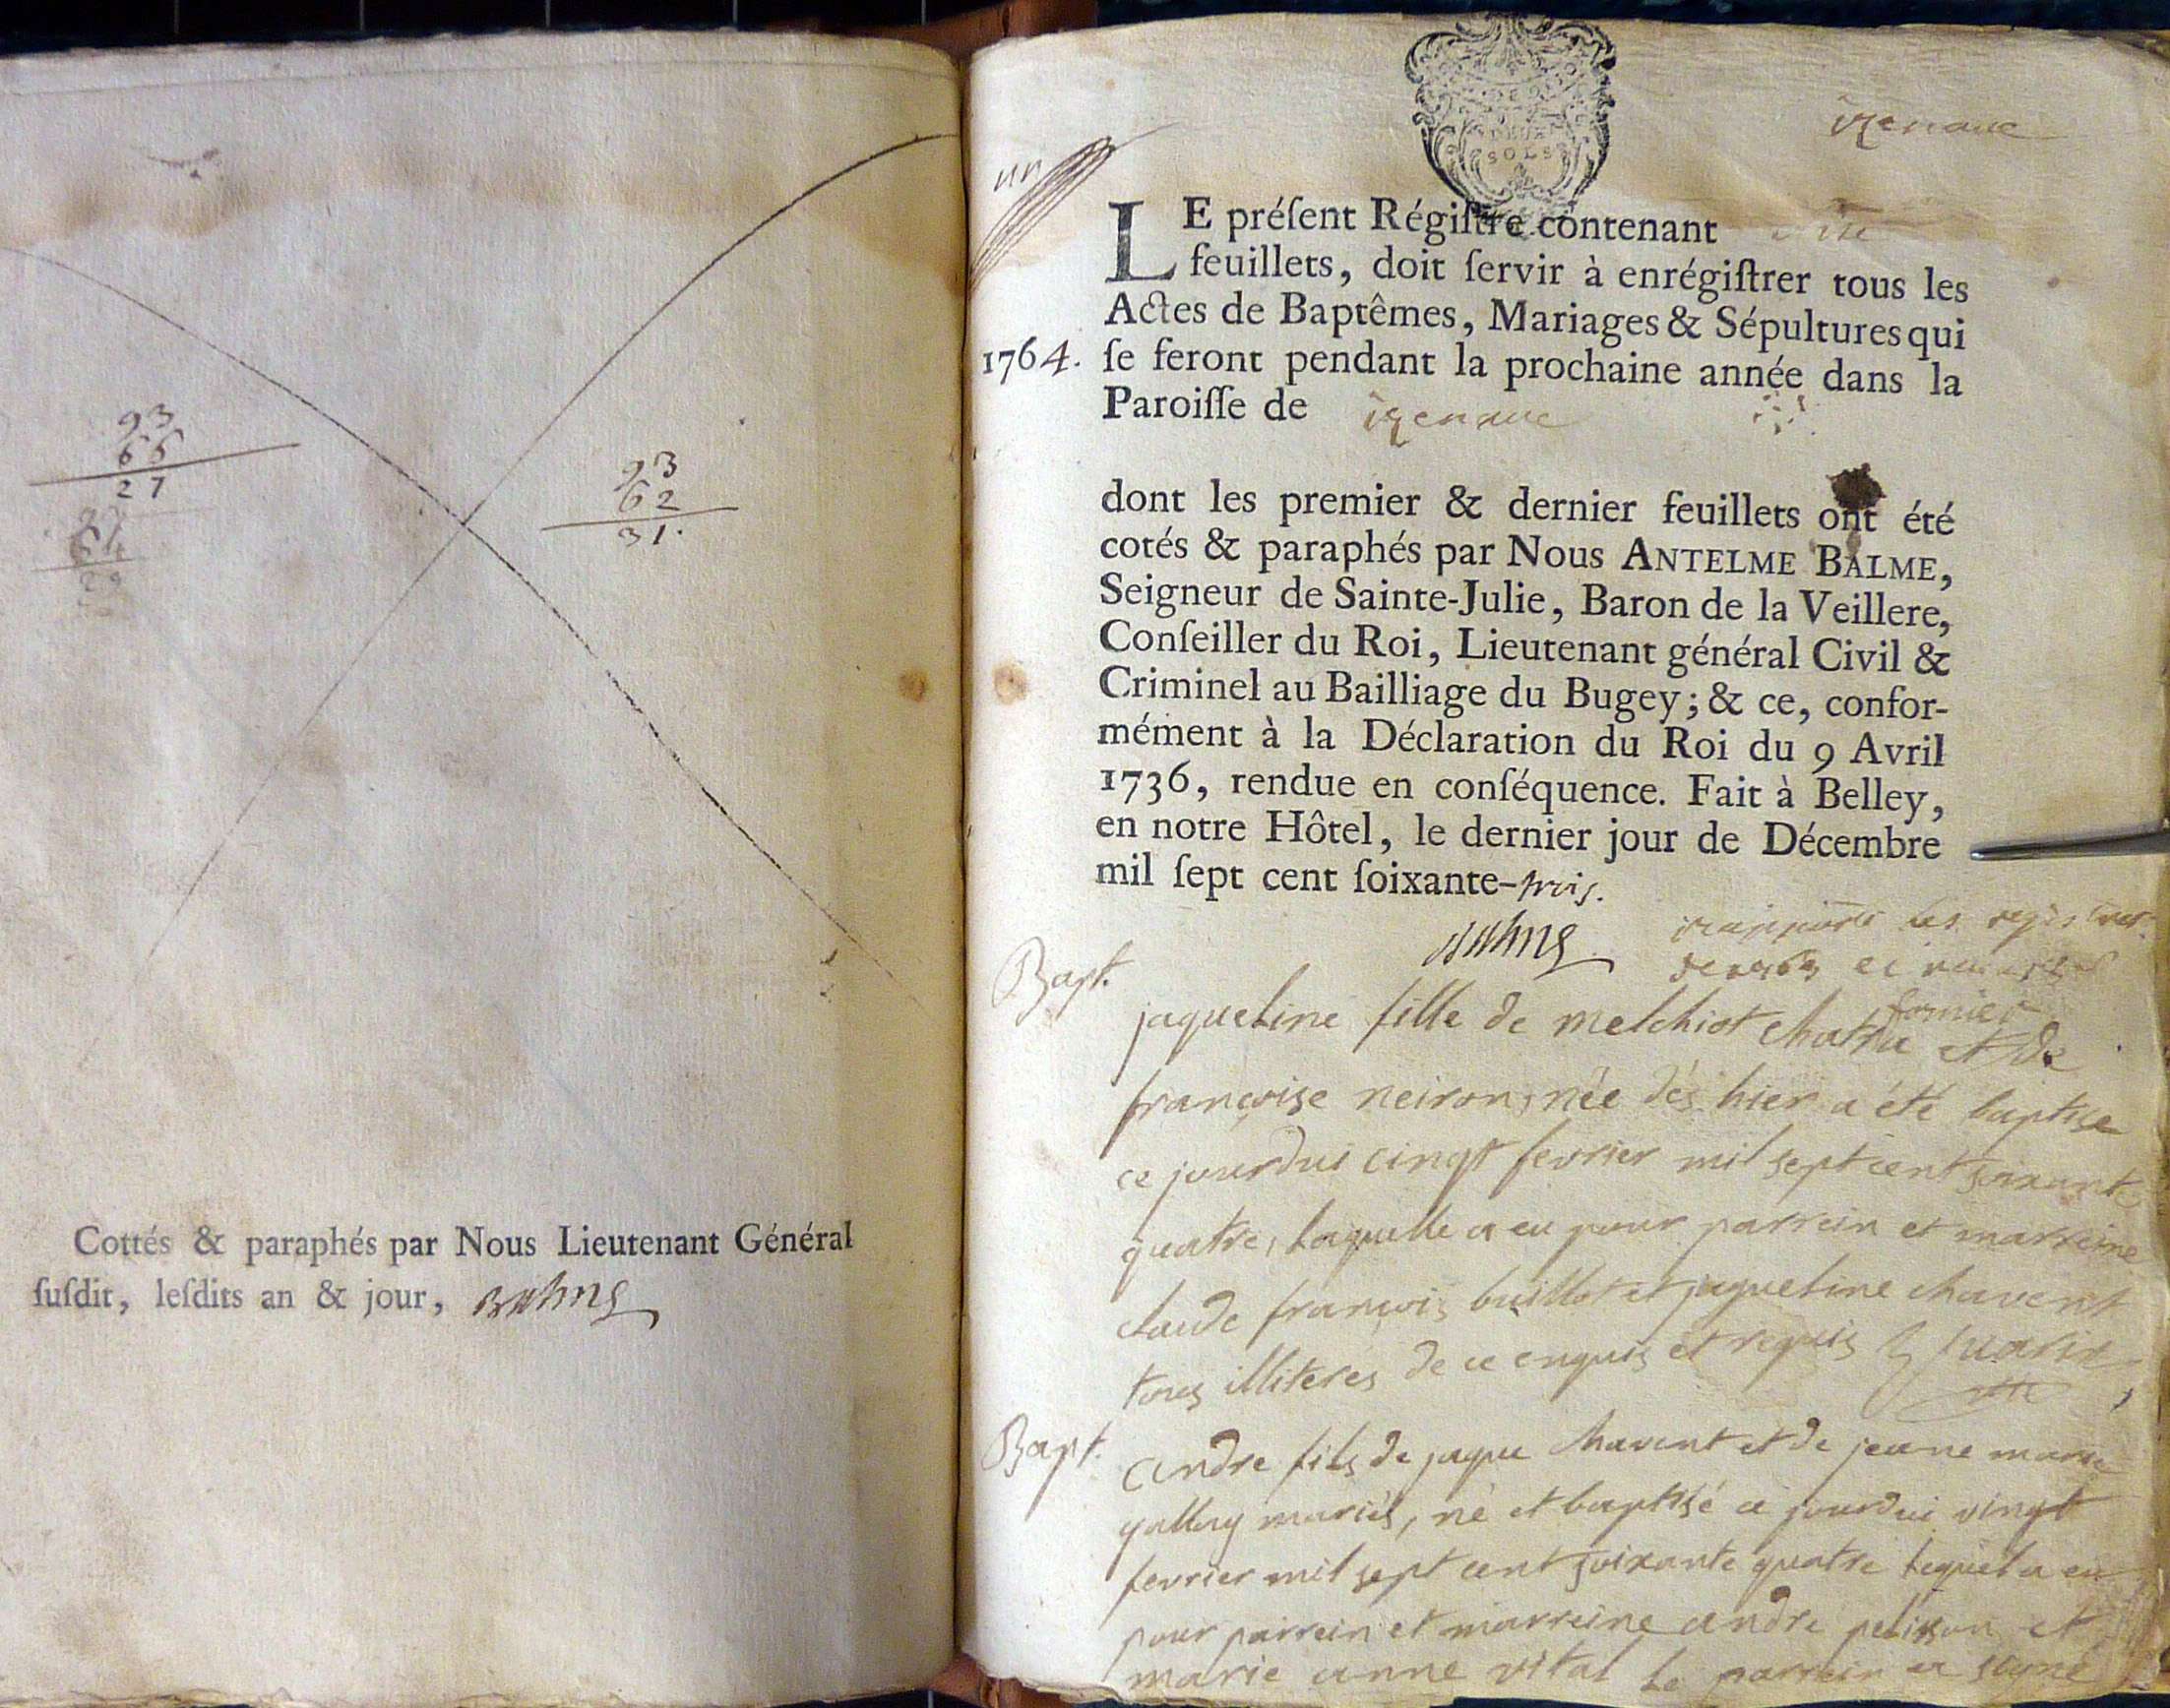 93
66
27
93
62
31.
Cottés & paraphés par Nous Lieutenant Général
ſuſdit, leſdits an & jour,
un
SOLS
LE préſent Régiſtre contenant
feuillets, doit ſervir à enrégiſtrer tous les
Actes de Baptêmes, Mariages & Sépultures qui
1764. ſe feront pendant la prochaine année dans la
Paroiſſe de
dont les premier & dernier feuillets ont été
cotés & paraphés par Nous ANTELME BALME,
Seigneur de Sainte-Julie, Baron de la Veillere,
Conſeiller du Roi, Lieutenant général Civil &
Criminel au Bailliage du Bugey; & ce, confor-
mément à la Déclaration du Roi du 9 Avril
1736, rendue en conſéquence. Fait à Belley,
en notre Hôtel, le dernier jour de Décembre
mil ſept cent ſoixante-trois.
les registres
Bapt.
fornier
jaqueline fille de melchiot chatru et de
françoise neiron, née dés hier a été baptise
ce jourdui vingt fevrier mil sept cent soixante
quatre, laquelle a eu pour parrein et marreine
claude francois buillot et jaqueline chavent
tous illiteres de ce enquis et requis
Bapt.
andre fils de jaque chavent et de jeane marie
gallay mariés, né et baptisé ce jourdui vingt
fevrier mil sept cent soixante quatre lequel a eu
pour parrein et marreine andre pelisson et
marie anne vital le parrein a signé